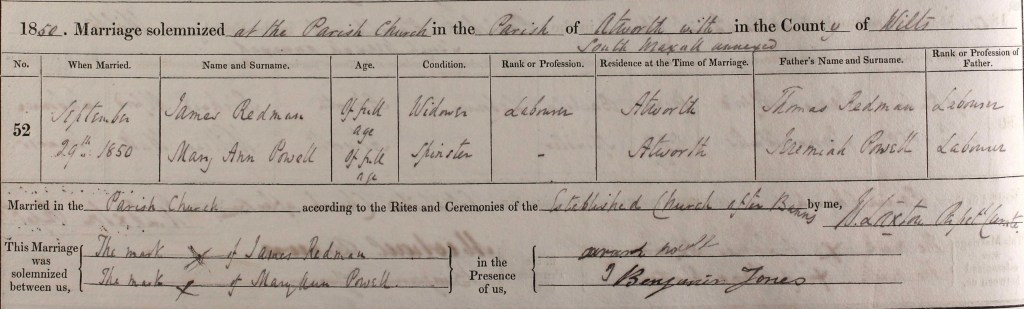 1850. Marriage solemnized at the Parish Church in the Parish of Atworth with South Wraxall annexed in the County of Wilts
No. When Married. Name and Surname. Age. Condition. Rank or Profession. Residence at the Time of Marriage. Father's Name and Surname. Rank or Profession of Father.
52 September 29th 1850
James Redman Of full age Widower Labourer Atworth Thomas Redman Labourer
Mary Ann Powell Of full age Spinster - Atworth Jeremiah Powell Labourer
Married in the Parish Church according to the Rites and Ceremonies of the Established Church after Banns by me,
This Marriage was solemnized between us,
The mark X of James Redman
The mark X of Mary Ann Powell.
in the Presence of us,
Benjamin Jones